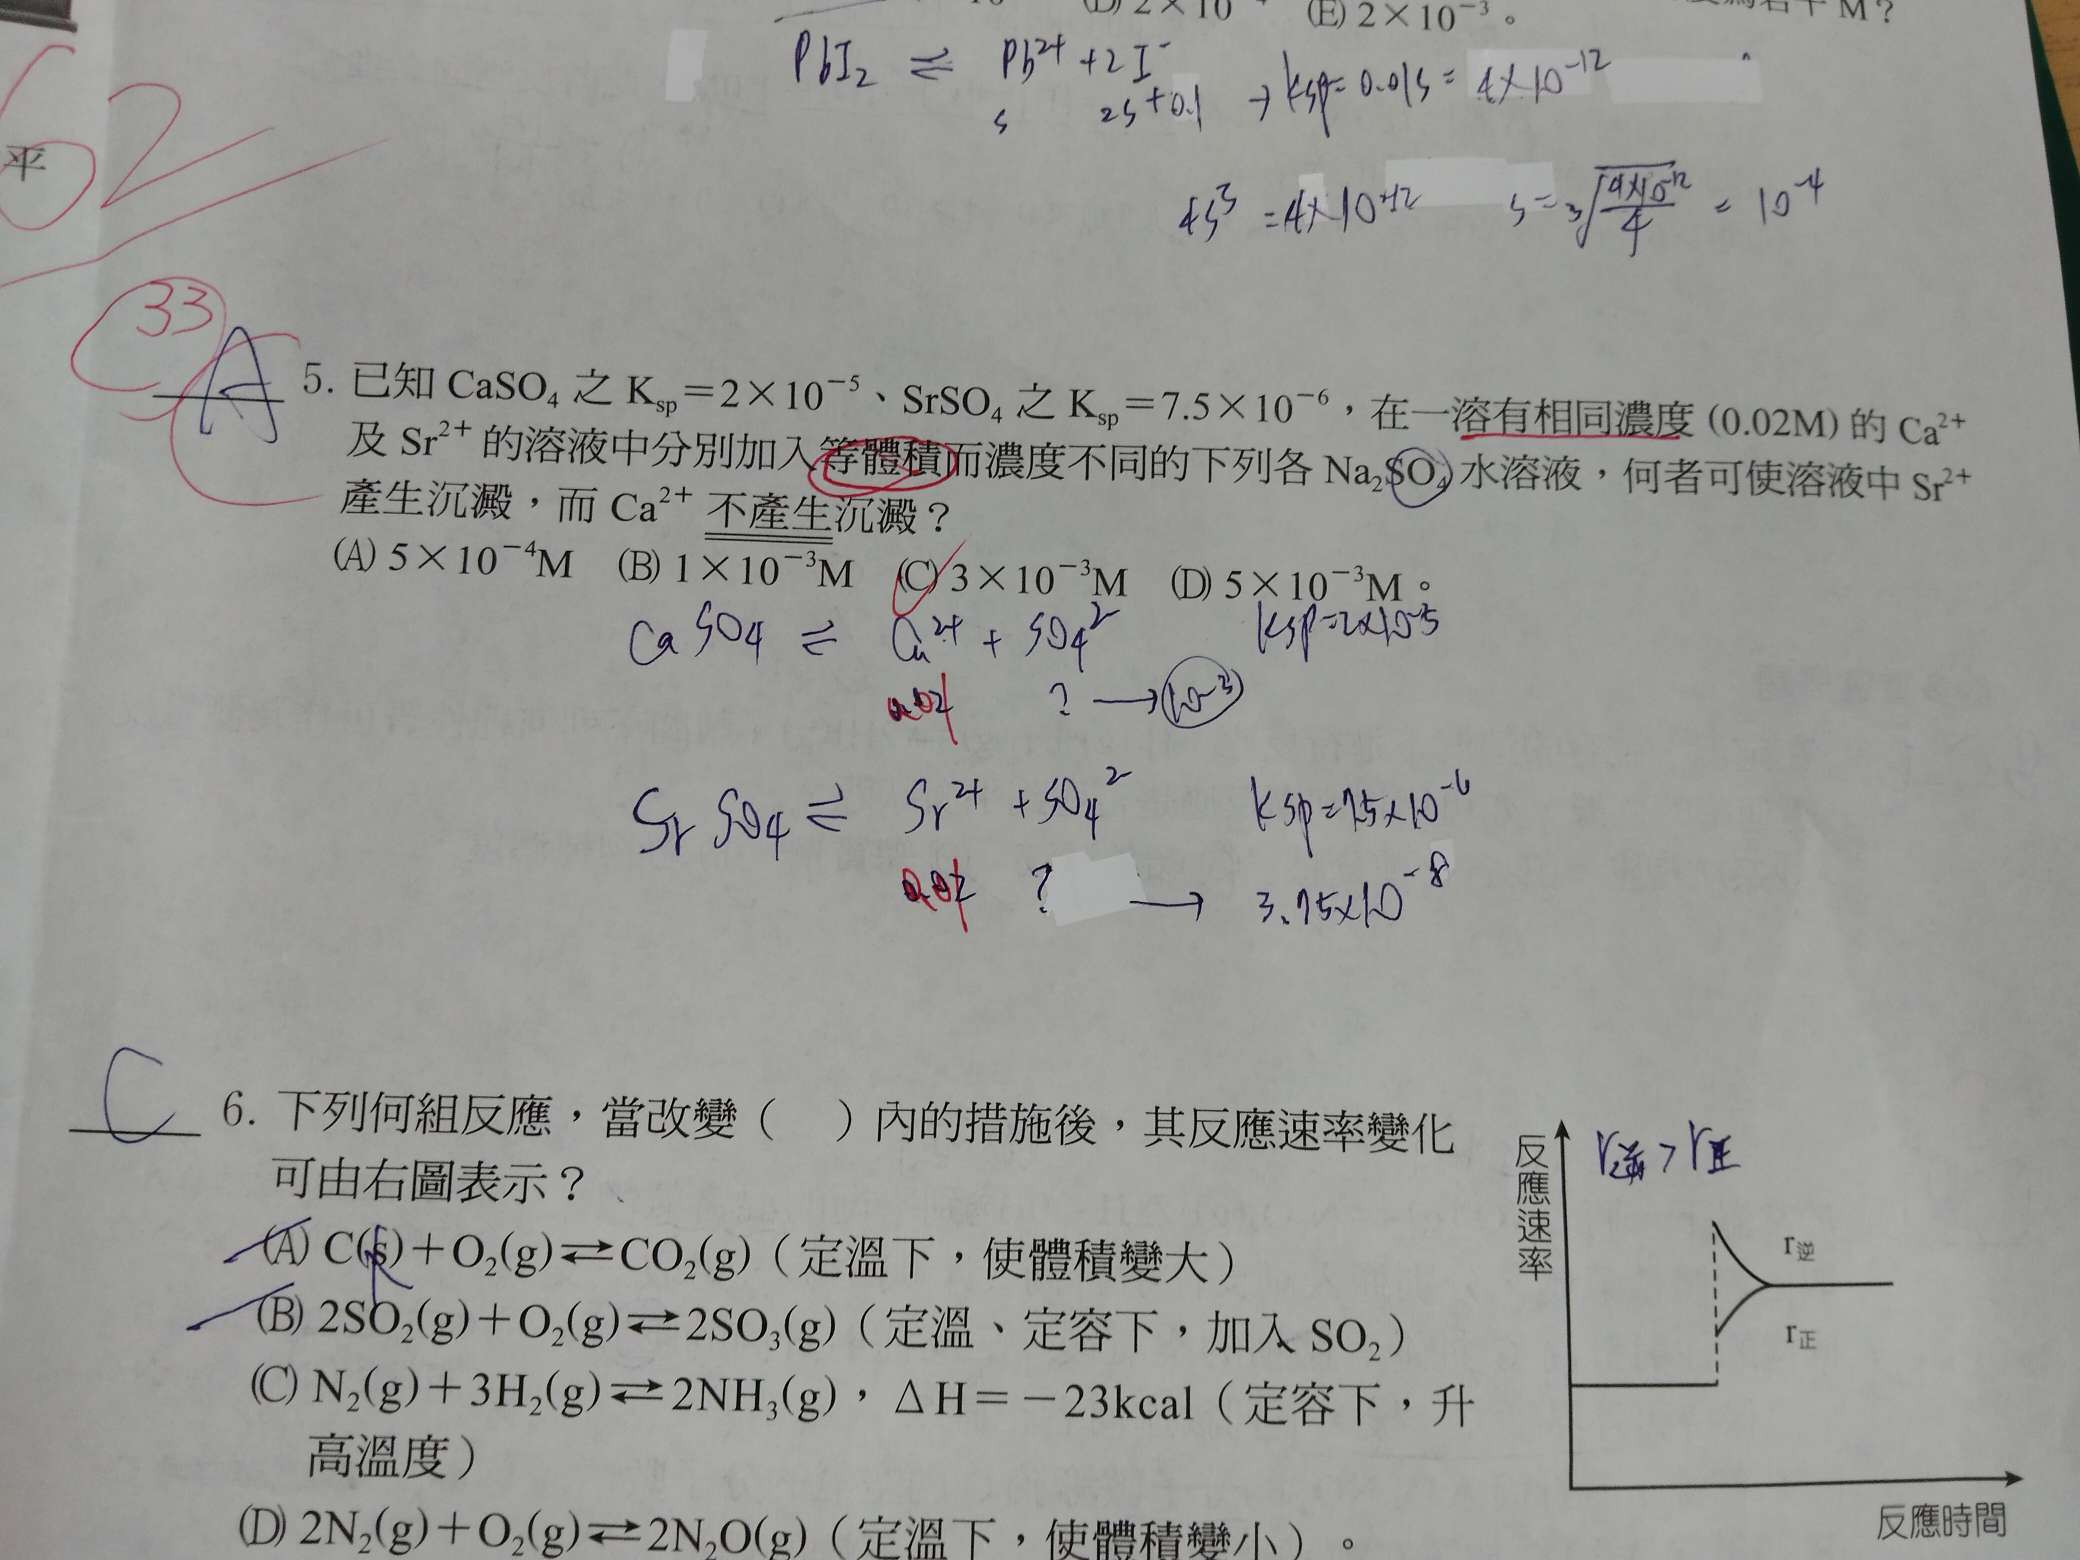 (D) 2×10 (E) 2×10⁻³。 M?
PbI₂ ⇌ Pb²⁺ + 2I⁻
s 2s+0.1 → Ksp=0.01s= 4×10⁻¹²
平
62
4s³ =4×10⁻¹² s=³√(4×10⁻¹²/4) = 10⁻⁴
33
A
5. 已知 CaSO₄ 之 Kₛₚ=2×10⁻⁵、SrSO₄ 之 Kₛₚ=7.5×10⁻⁶,在一溶有相同濃度 (0.02M) 的 Ca²⁺
及 Sr²⁺ 的溶液中分別加入等體積而濃度不同的下列各 Na₂SO₄ 水溶液,何者可使溶液中 Sr²⁺
產生沉澱,而 Ca²⁺ 不產生沉澱?
(A) 5×10⁻⁴M (B) 1×10⁻³M (C) 3×10⁻³M (D) 5×10⁻³M。
CaSO₄ ⇌ Ca²⁺ + SO₄²⁻ Ksp=2×10⁻⁵
? → 10⁻³
SrSO₄ ⇌ Sr²⁺ + SO₄²⁻ Ksp=7.5×10⁻⁶
? → 3.75×10⁻⁸
C
6. 下列何組反應,當改變( )內的措施後,其反應速率變化
可由右圖表示?
(A) C(s)+O₂(g)⇌CO₂(g)(定溫下,使體積變大)
(B) 2SO₂(g)+O₂(g)⇌2SO₃(g)(定溫、定容下,加入 SO₂)
(C) N₂(g)+3H₂(g)⇌2NH₃(g),ΔH=-23kcal(定容下,升
高溫度)
(D) 2N₂(g)+O₂(g)⇌2N₂O(g)(定溫下,使體積變小)。
反應速率
r逆>r正
r逆
r正
反應時間